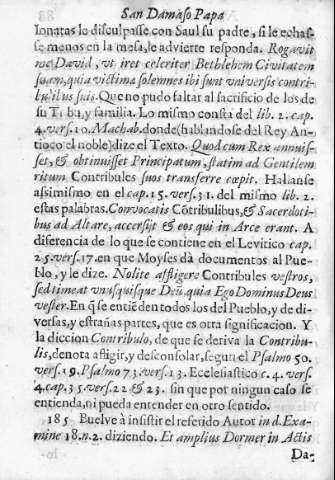 San Damaso Papa
Ionatas le disculpasse con Saul su padre, si le echas-
se menos en la mesa, le advierte responda. Rogavit
me David, vt iret celeriter Bethlehem Civitatem
suam, quia victima solemnes ibi sunt vniversis contri-
bulibus suis. Que no pudo faltar al sacrificio de los de
su Tribu, y familia. Lo mismo consta del lib. 2. cap.
4. vers. 10. Machab. donde (hablandose del Rey An-
tioco el noble) dize el Texto. Quod cum Rex annuis-
set, & obtinuisset Principatum, statim ad Gentilem
ritum Contribules suos transferre cœpit. Hallanse
assimismo en el cap. 15. vers. 31. del mismo lib. 2.
estas palabras. Convocatis Cōtribulibus, & Sacerdoti-
bus ad Altare, accersijt & eos qui in Arce erant. A
diferencia de lo que se contiene en el Levitico cap.
25. vers. 17. en que Moyses dà documentos al Pue-
blo, y le dize. Nolite affligere Contribules vestros,
sed timeat vnusquisque Deū, quia Ego Dominus Deus
vester. En q̃ se entiēden todos los del Pueblo, y de di-
versas, y estrañas partes, que es otra significacion. Y
la diccion Contribulo, de que se deriva la Contribu-
lis, denota afligir, y desconsolar, segun el Psalmo 50.
vers. 19. Psalmo 73. vers. 13. Ecclesiastico c. 4. vers.
4. cap. 35. vers. 22 & 23. sin que por ningun caso se
entienda, ni pueda entender en otro sentido.
185 Buelve à insistir el referido Autor in d. Exa-
mine 18. n. 2. diziendo. Et amplius Dormer in Actis
Da-